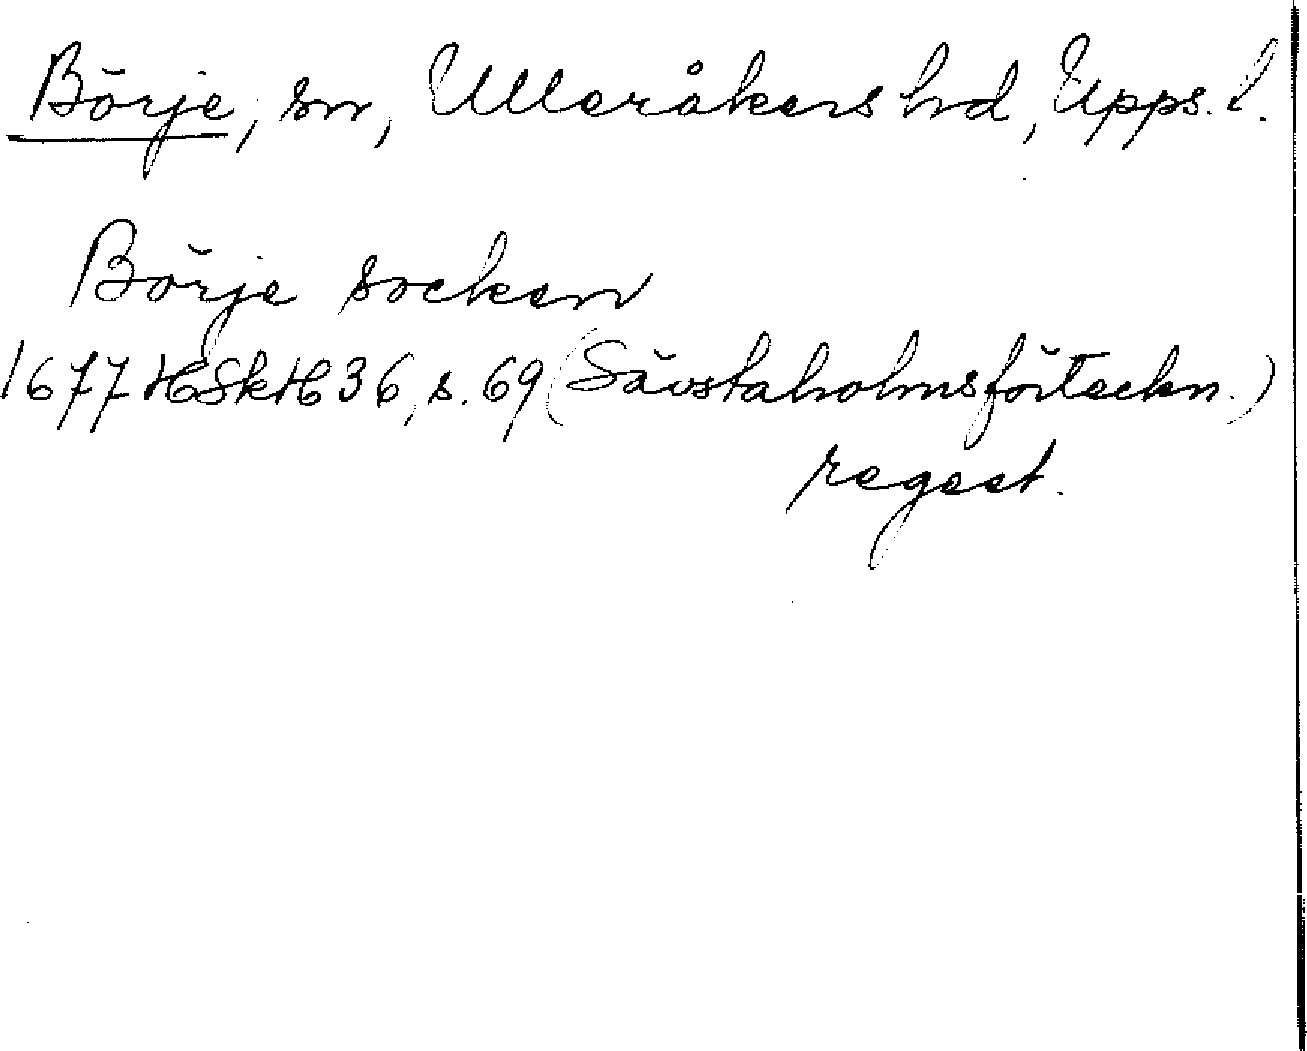 Börje, sn, Ulleråkers hd, Upps. l.
Börje socken
1677 HSkH 36, s. 69 (Sävstaholmsförteckn.)
regest.